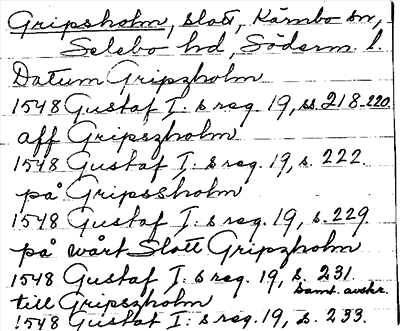 Gripsholm, slott, Kärnbo sn,
Selebo hd, Söderm. l.
Datum Gripzholm
1548 Gustaf I: s reg. 19, ss. 218-220.
aff Gripszholm
1548 Gustaf I: s reg. 19, s. 222.
på Gripssholm
1548 Gustaf I: s reg. 19, s. 229.
på wårt Slott Gripzholm
1548 Gustaf I: s reg. 19, s. 231.
samt. avskr.
till Gripszholm
1548 Gustaf I: s reg. 19, s. 233.